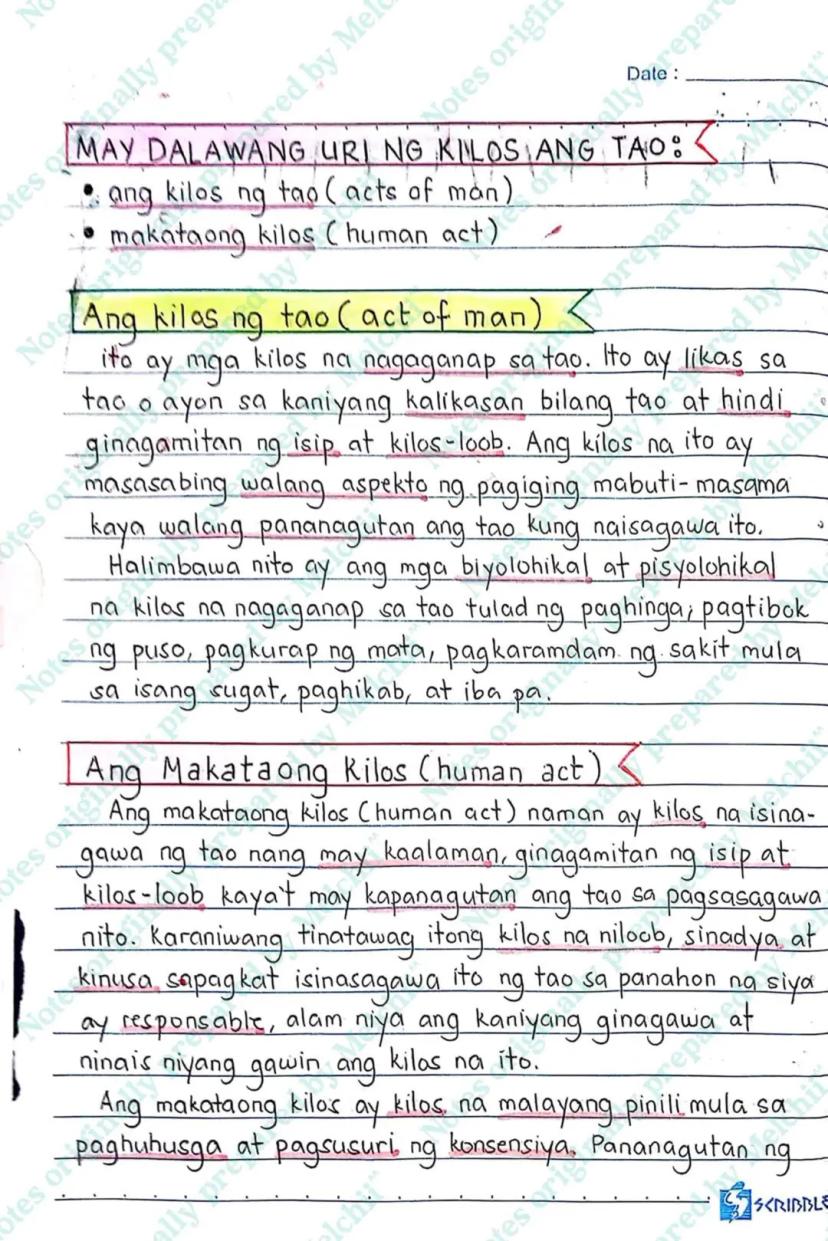 Date :
MAY DALAWANG URI NG KILOS ANG TAO:
• ang kilos ng tao (acts of man)
• makataong kilos (human act)
Ang kilos ng tao (act of man)
ito ay mga kilos na nagaganap sa tao. Ito ay likas sa
tao o ayon sa kaniyang kalikasan bilang tao at hindi
ginagamitan ng isip at kilos-loob. Ang kilos na ito ay
masasabing walang aspekto ng pagiging mabuti-masama
kaya walang pananagutan ang tao kung naisagawa ito.
Halimbawa nito ay ang mga biyolohikal at pisyolohikal
na kilos na nagaganap sa tao tulad ng paghinga, pagtibok
ng puso, pagkurap ng mata, pagkaramdam ng sakit mula
sa isang sugat, paghikab, at iba pa.
Ang Makataong Kilos (human act)
Ang makataong kilos (human act) naman ay kilos na isina-
gawa ng tao nang may kaalaman, ginagamitan ng isip at
kilos-loob kaya't may kapanagutan ang tao sa pagsasagawa
nito. Karaniwang tinatawag itong kilos na niloob, sinadya at
kinusa sapagkat isinasagawa ito ng tao sa panahon na siya
ay responsable, alam niya ang kaniyang ginagawa at
ninais niyang gawin ang kilos na ito.
Ang makataong kilos ay kilos na malayang pinili mula sa
paghuhusga at pagsusuri ng konsensiya. Pananagutan ng
SCRIBBLE
Notes originally prepared by Melchi